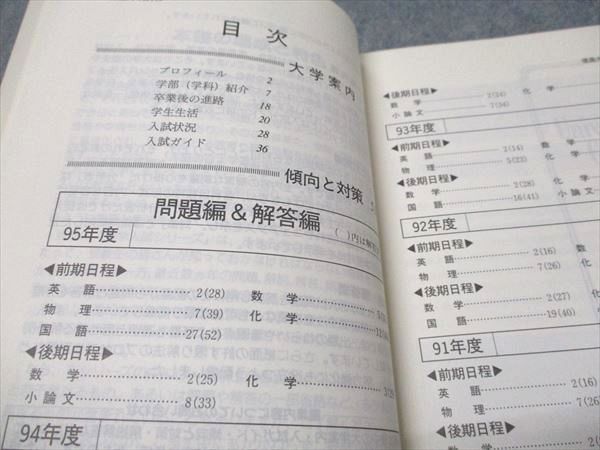 目次
大学案内
プロフィール 2
学部(学科)紹介 7
卒業後の進路 18
学生生活 20
入試状況 28
入試ガイド 36
傾向と対策
問題編&解答編
95年度
◀前期日程▶
英語………2(28) 数学………
物理………7(39) 化学………
国語………27(52)
◀後期日程▶
数学………2(25) 化学………
小論文………8(33)
94年度
◀後期日程▶
数学………2(24) 化学
小論文………7(34)
93年度
◀前期日程▶
英語………2(14) 数学
物理………5(23) 化学
◀後期日程▶
数学………2(28) 化学
国語………16(41) 小論文
92年度
◀前期日程▶
英語………2(16) 数
物理………7(26) 化
◀後期日程▶
数学………2(27)
国語………19(40)
91年度
◀前期日程▶
英語………2(16)
物理………7(26)
◀後期日程▶
数学